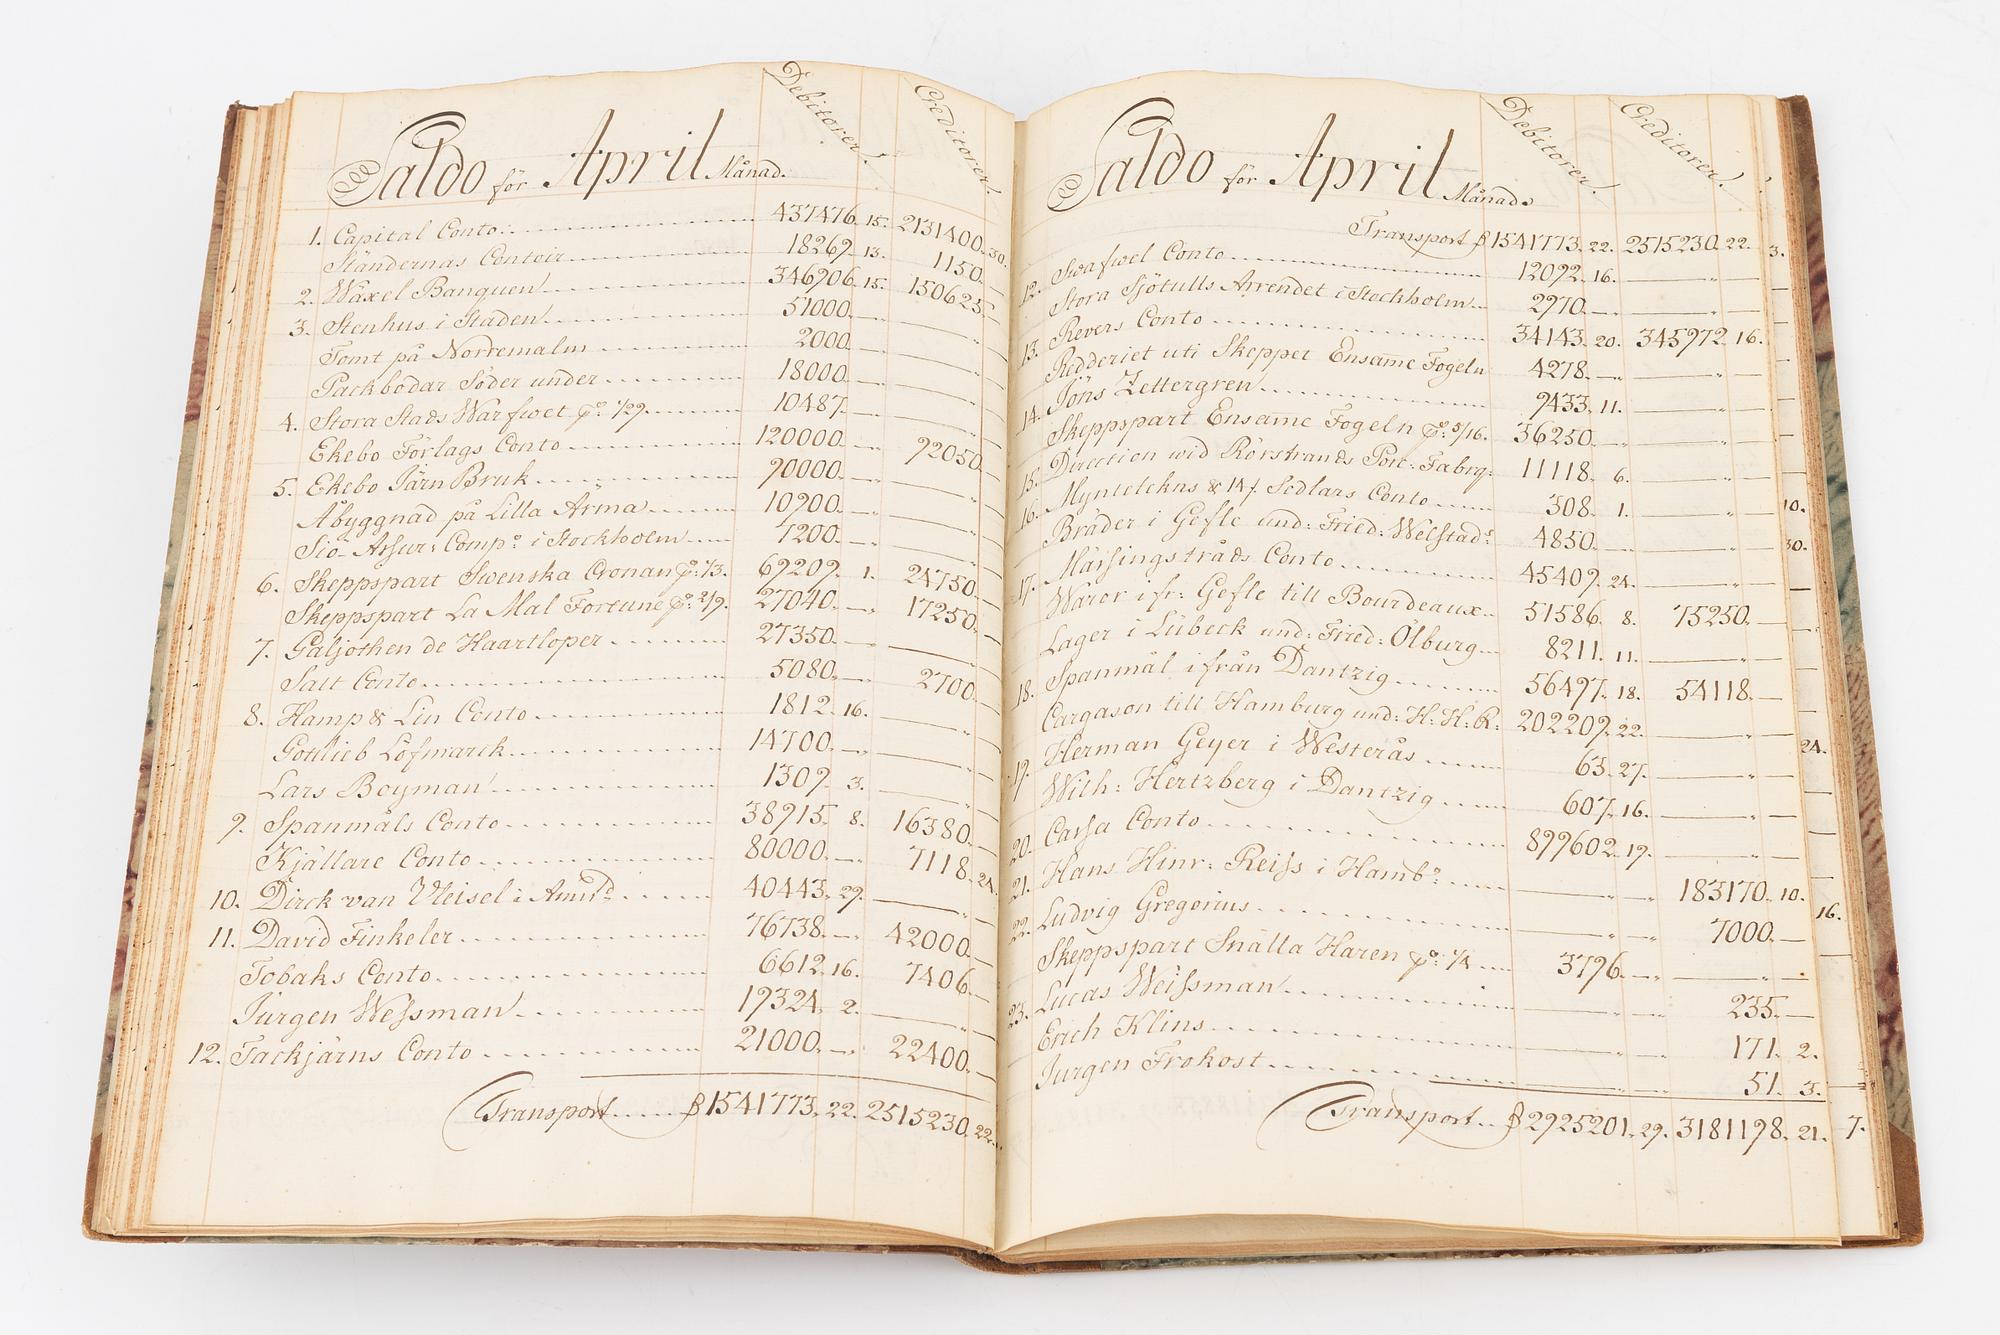 Debitorer. Creditorer.
Saldo för April Månad.
1. Capital Conto 437476. 15. 2131400. 30.
Ständernas Contoir 18269. 13. 1150.
2. Wäxel Banquen 346906. 15. 150625.
3. Stenhus i Staden 51000.
Tomt på Norremalm 2000.
Packbodar Söder under 18000.
4. Stora Stads Warfwet pr 1/29. 10487.
Ekebo Förlags Conto 120000. 92050.
5. Ekebo Järn Bruk 90000.
Åbyggnad på Lilla Arma 10900.
Siö-Assur: Comp: i Stockholm 7200.
6. Skeppspart Swenska Cronan pr: 1/3. 69209. 1. 24750.
Skeppspart La Mal Fortune pr: 2/9. 27040. 17250.
7. Galjothen de Haartloper 27350.
Salt Conto 5080. 2700.
8. Hamp & Lin Conto 1812. 16.
Gottlieb Löfmarck 14700.
Lars Boyman 1309. 3.
9. Spanmåls Conto 38915. 8. 16380.
Kjällare Conto 80000. 7118. 24.
10. Dirck van Vleisel i Amstd 40443. 29.
11. David Finkeler 76738. 42000.
Tobaks Conto 6612. 16. 7406.
Jürgen Wessman 19324. 2.
12. Tackjärns Conto 21000. 22400.
Transport 1541773. 22. 2515230. 22.
Debitorer. Creditorer.
Saldo för April Månad.
Transport 1541773. 22. 2515230. 22.
12. Swafwel Conto 12092. 16.
Stora Sjötulls Arrendet i Stockholm 2970.
13. Revers Conto 34143. 20. 345972. 16.
Redderiet uti Skeppet Ensame Fogeln 4278.
14. Jöns Zettergren 9433. 11.
Skeppspart Ensame Fogeln pr: 5/16. 36250.
15. Direction wid Rörstrands Porc: Fabrq: 11118. 6.
16. Myntetekns & 14/ Sedlars Conto 308. 1.
Bräder i Gefle und: Fried: Welstad: 4850.
17. Mässingstråds Conto 45409. 24.
Waror ifr: Gefle till Bourdeaux 51586. 8. 75250.
Lager i Lübeck und: Fried: Olburg 8211. 11.
18. Spanmål ifrån Dantzig 56497. 18. 54118.
Cargason till Hamburg und: H: H: R: 202209. 22.
19. Herman Geyer i Westerås 63. 27.
Wilh: Hertzberg i Dantzig 607. 16.
20. Cassa Conto 899602. 19.
21. Hans Hinr: Reiss i Hamb: 183170. 10.
22. Ludvig Gregorius 7000.
Skeppspart Snälla Haren pr: 1/4 3796.
23. Lucas Weissman 235.
Erich Klins 171. 2.
Jurgen Frokost 51. 3.
Transport 2925201. 29. 3181198. 21.
3.
10.
30.
24.
16.
7.